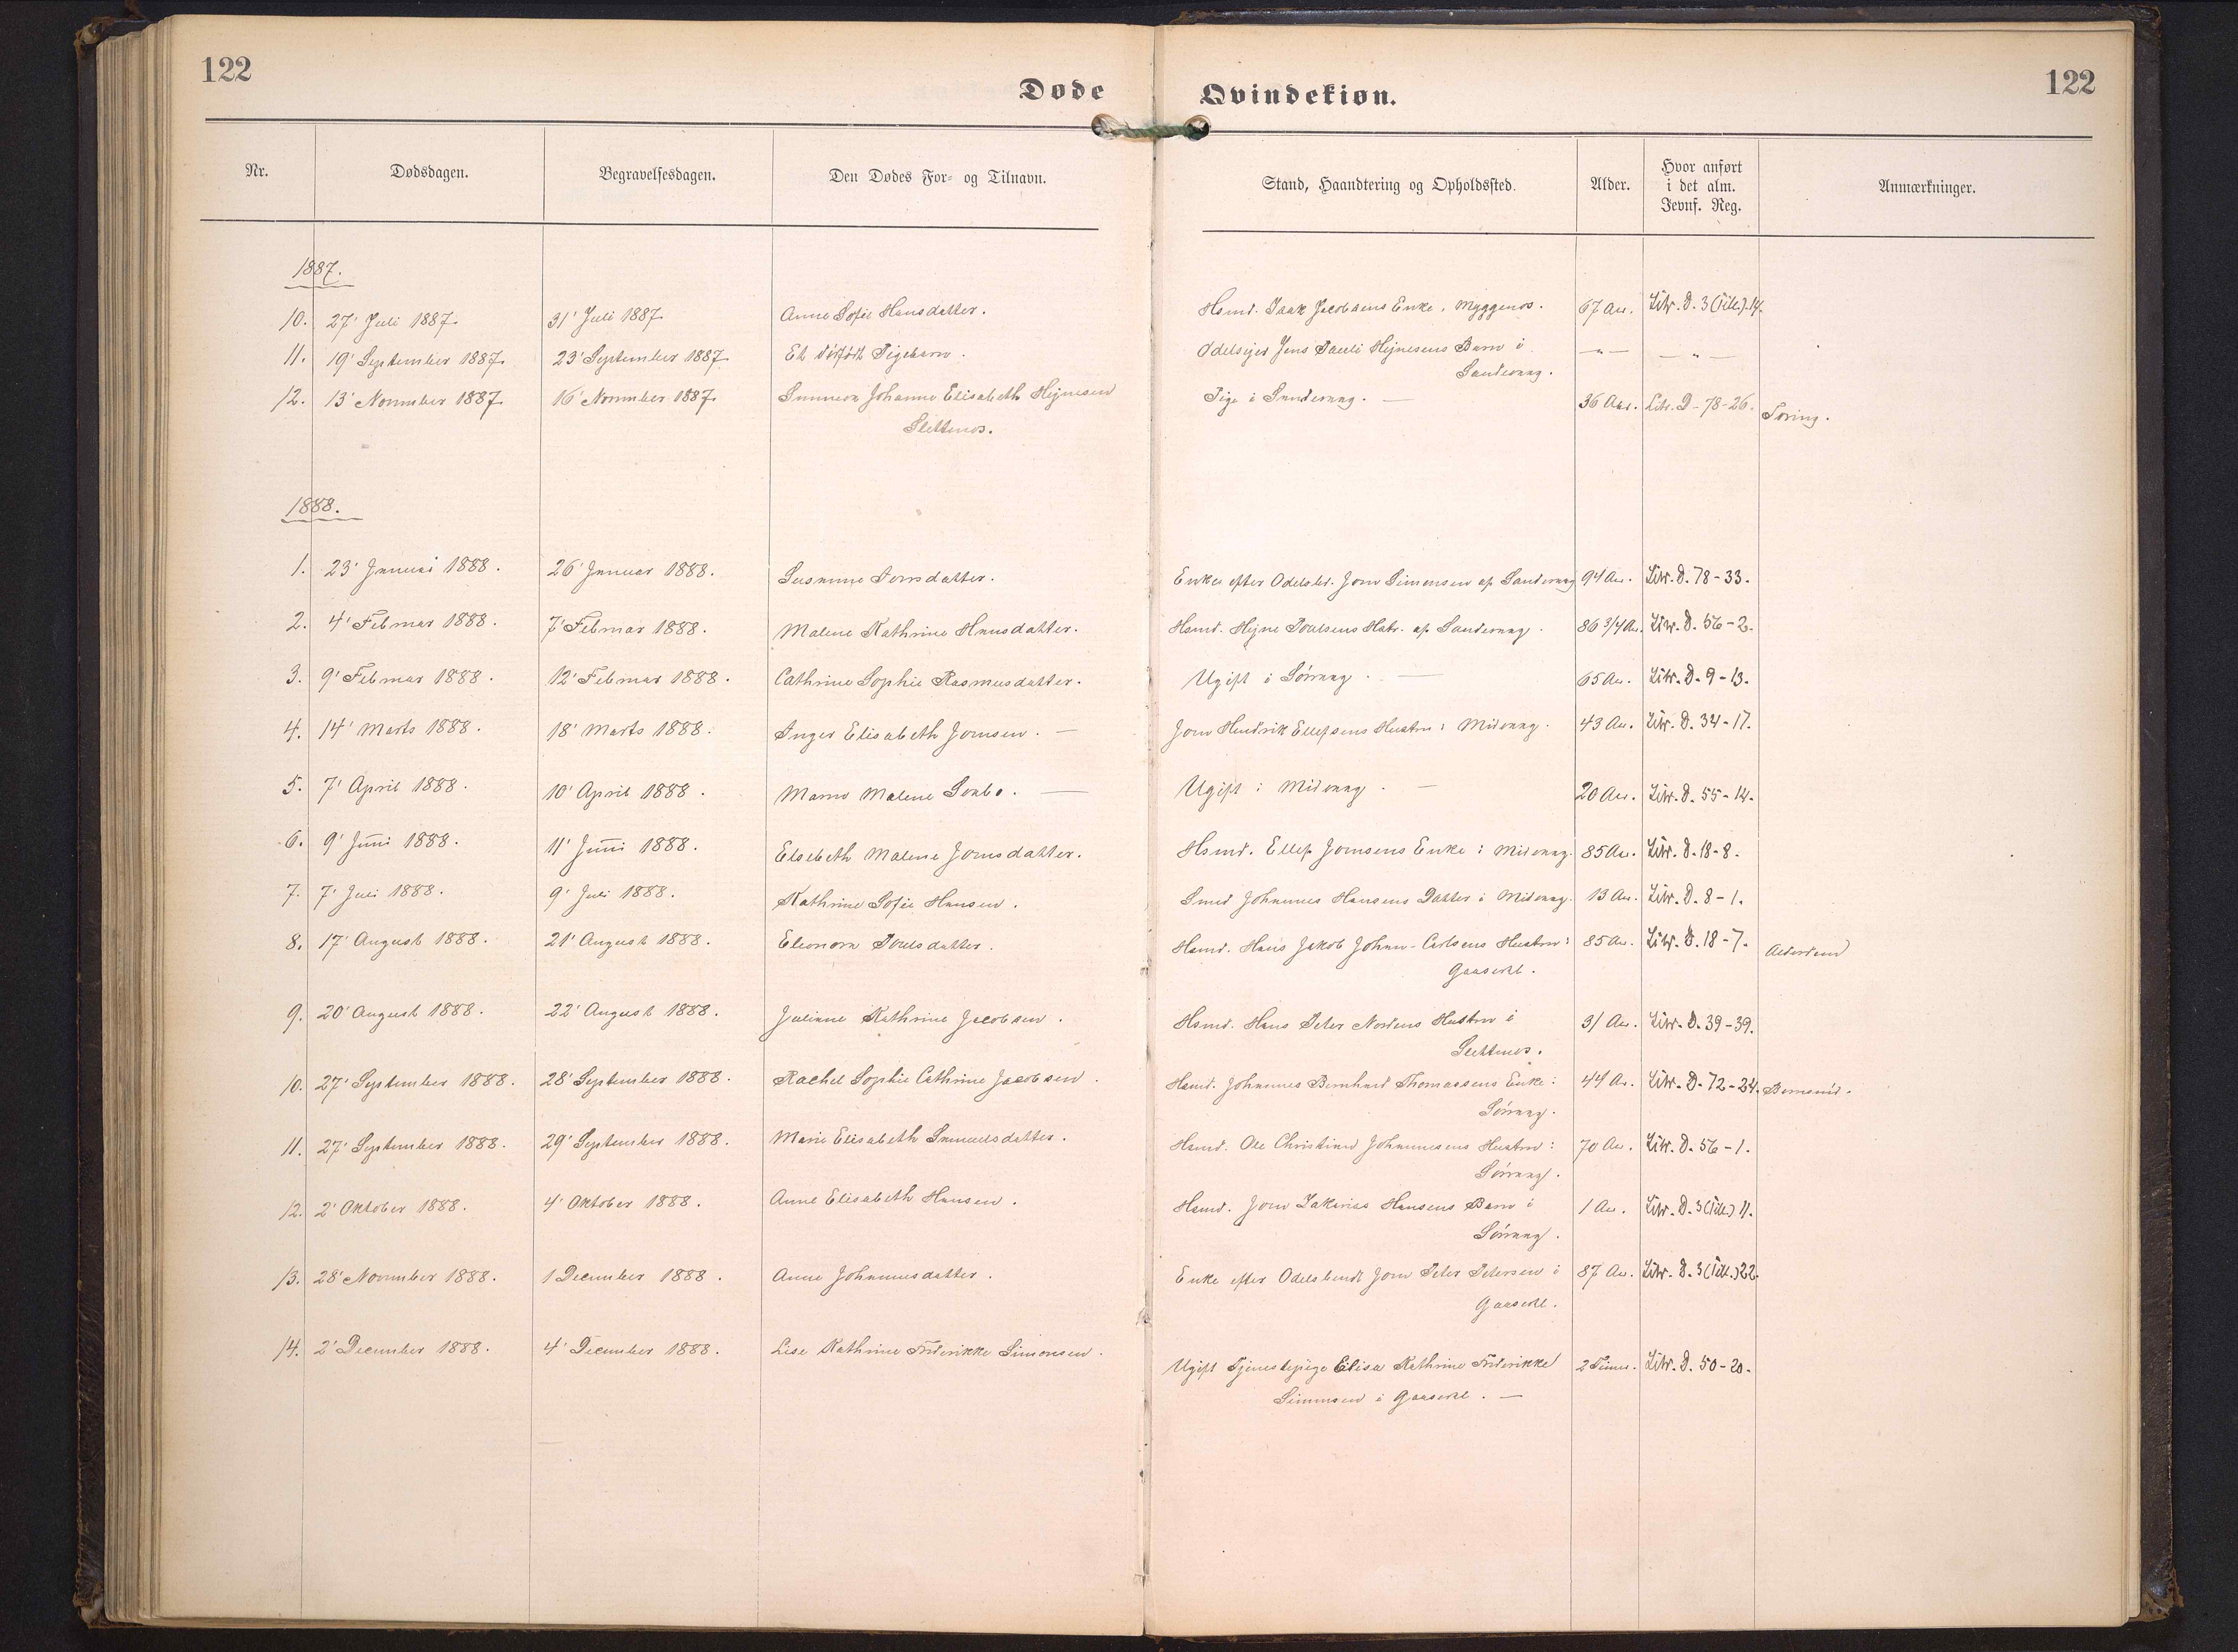 122
Døde
Qvindekiøn.
122
Nr.
Dødsdagen.
Begravelsesdagen.
Den Dødes For- og Tilnavn.
Stand, Haandtering og Opholdssted.
Alder.
Hvor anført
i det alm.
Jevnf. Reg.
Anmærkninger.
1887.
10. 27' Juli 1887. 31' Juli 1887. Anne Sofie Hansdatter. Hsmd. Isak Jacobsens Enke, Myggenæs. 67 Aar. Litr. D. 3 (Till.) - 14.
11. 19' September 1887. 23' September 1887. Et dödfödt Pigebarn. Odelsejer Jens Pauli Hejnesens Barn i — " — — " —
Sandevaag.
12. 13' November 1887. 16' November 1887. Johanne Elisabeth Hejnesen Pige i Sandevaag. — 36 Aar. Litr. D - 78 - 26.
Slettenæs.
1888.
1. 23' Januar 1888. 26' Januar 1888. Susanne Joensdatter. Enke efter Odelsbd. Joen Simonsen af Sandevaag 94 Aar. Litr. D. 78 - 33.
2. 4' Februar 1888. 7' Februar 1888. Malene Kathrine Hansdatter. Hsmd. Hejne Poulsens Hstr. af Sandevaag. 86 3/4 Aar. Litr. D. 56 - 2.
3. 9' Februar 1888. 12' Februar 1888. Cathrine Sophie Rasmusdatter. Ugift i Sörvaag. — 65 Aar. Litr. D - 9 - 13.
4. 14' Marts 1888. 18' Marts 1888. Inger Elisabeth Joensen. — Joen Hendrik Ellefsens Hustru i Midvaag. 43 Aar. Litr. D. 34 - 17.
5. 7' April 1888. 10' April 1888. Malene — Ugift i Midvaag. — 20 Aar. Litr. D. 55 - 14.
6. 9' Juni 1888. 11' Juni 1888. Elsebeth Malene Joensdatter. Hsmd. Ellef Joensens Enke i Midvaag. 85 Aar. Litr. D. 18 - 8.
7. 7' Juli 1888. 9' Juli 1888. Kathrine Sofie Hansen. Smed Johannes Hansens Datter i Midvaag. 13 Aar. Litr. D. 8 - 1.
8. 17' August 1888. 21' August 1888. Eleonora Poulsdatter. Hsmd. Hans Jakob Johan-Carlsens Hustru i 85 Aar. Litr. D. 18 - 7. Alderdom
Gaasedal.
9. 20' August 1888. 22' August 1888. Julianne Kathrine Jacobsen. Hsmd. Hans Peter Nordens Hustru i 31 Aar. Litr. D. 39 - 39.
Slettenæs.
10. 27' September 1888. 28' September 1888. Rachel Sophie Cathrine Jacobsen. Hsmd. Johannes Bernhard Thomassens Enke i 44 Aar. Litr. D. 72 - 24.
Sörvaag.
11. 27' September 1888. 29' September 1888. Marie Elisabeth Samuelsdatter. Hsmd. Ole Christian Johannesens Hustru i 70 Aar. Litr. D. 56 - 1.
Sörvaag.
12. 2' Oktober 1888. 4' Oktober 1888. Anne Elisabeth Hansen. Hsmd. Joen Zakarias Hansens Barn i 1 Aar. Litr. D. 3 (Till.) 11.
Sörvaag.
13. 28' November 1888. 1 December 1888. Anne Johannesdatter. Enke efter Odelsbonde Joen Peter Petersen i 87 Aar. Litr. D. 3 (Till.) 22.
Gaasedal.
14. 2' December 1888. 4' December 1888. Lise Kathrine Frederikke Simonsen. Ugift Tjenestepige Elisa Kathrine Frederikke 2 Timer. Litr. D. 50 - 20.
Simonsen i Gaasedal. —